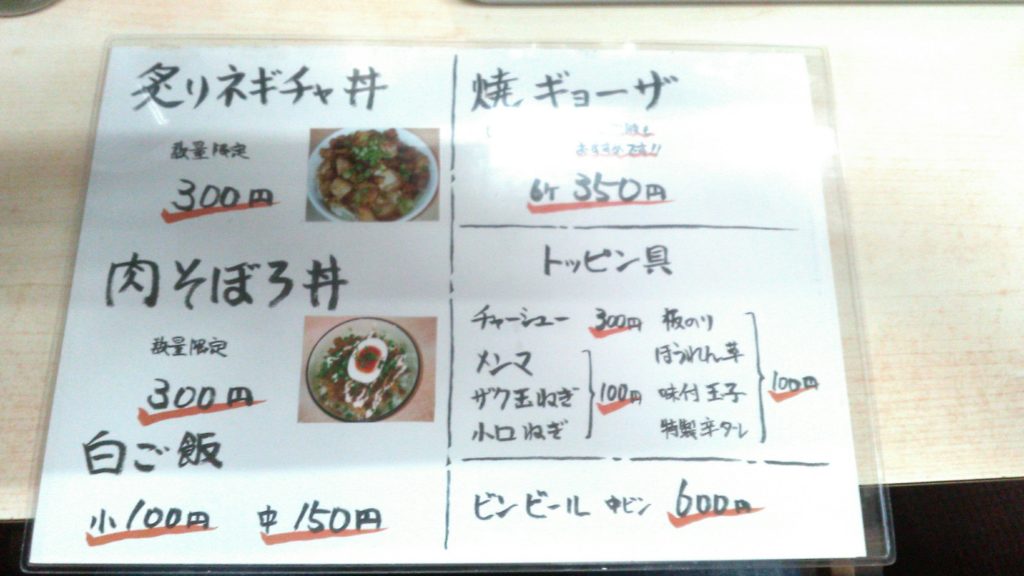 炙りネギチャ丼
数量限定
300円
肉そぼろ丼
数量限定
300円
白ご飯
小100円 中150円
焼ギョーザ
おすすめです!!
6ケ 350円
トッピン具
チャーシュー 300円
メンマ
ザク玉ねぎ
小口ねぎ
100円
板のり
ほうれん草
味付玉子
特製辛タレ
100円
ビンビール 中ビン 600円